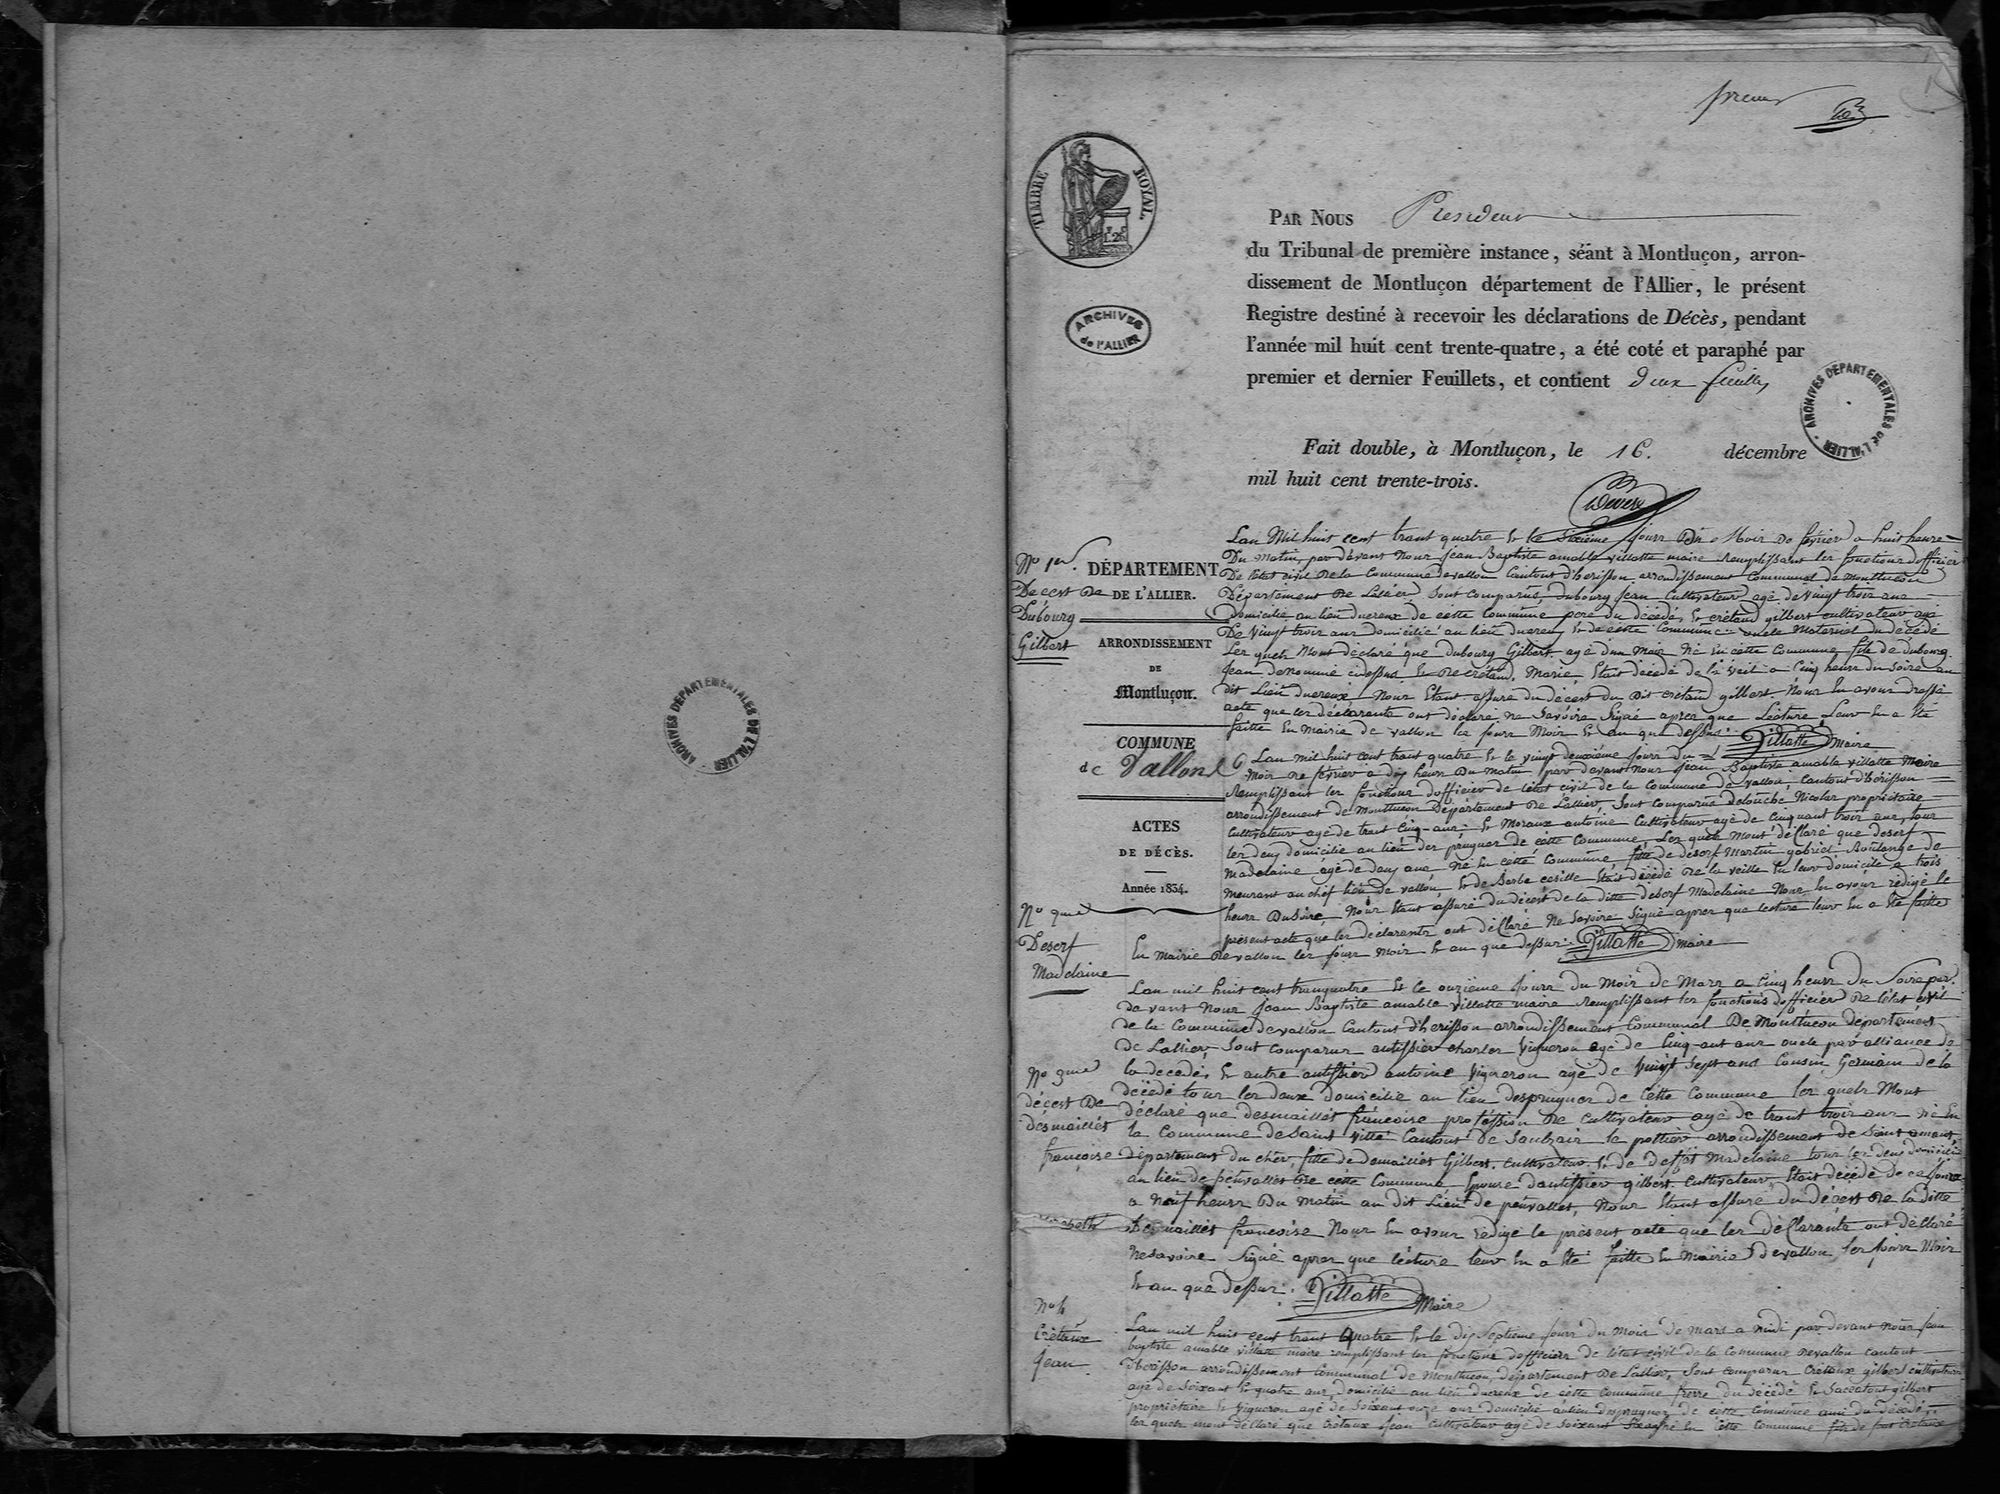 premier
TIMBRE ROYAL
ARCHIVES
de l'ALLIER
PAR NOUS Président
du Tribunal de première instance, séant à Montluçon, arron-
dissement de Montluçon département de l'Allier, le présent
Registre destiné à recevoir les déclarations de Décès, pendant
l'année mil huit cent trente-quatre, a été coté et paraphé par
premier et dernier Feuillets, et contient deux feuilles
ARCHIVES DEPARTEMENTALES DE L'ALLIER
Fait double, à Montluçon, le 16. décembre
mil huit cent trente-trois.
ARCHIVES DEPARTEMENTALES DE L'ALLIER
DÉPARTEMENT
DE L'ALLIER.
ARRONDISSEMENT
DE
Montluçon.
COMMUNE
de Vallon
ACTES
DE DÉCÈS.
Année 1834.
No 1er.
Décest De
Dubourg
Gilbert
Lan Mil huit cent trant quatre & le Sixieme jour Du Moir De février a huit heure
Du matin, par dévant Nour jean Baptiste amable villatte maire Remplissant ler fonctions dofficier
De létat civil De la Commune devallon Cantont d'herisson arrondissement Communal de Montlucon
Département De Lallier, Sont comparus dubourg jean Cultivateur agé de vingt troir anr
Domicilié au lieu ducreux de cette Commune peré du décédé, & crétaud gilbert cultivateur agé
De vingt troir anr domicilié au lieu ducreux & de cette Commune oncle Maternel du décédé
Ler quelr Mont déclaré que dubourg Gilbert agé dun Moir Né En cette Commune fils de dubourg
jean dénommé cidessus & De crétaud Marie, Etait décédé de la veil a Cinq heurr du Soire au
dit Lieu ducreux Nour Etant assuré du décest du Dit crétaud gilbert. Nour En avour dressé
acte que ler déclarants ont déclaré ne Savoire Signé aprer que Lecture Leur En a Eté
faitte En Mairie de vallon ler jourr Moir & an que dessus: Villatte Maire
No 2me
Deserf
Madelaine
Lan mil huit cent trant quatre & le vingt deuxiéme jour du
Moir De février a dix heurr Du Matin par devant Nour jean Baptiste amable villatte Maire
Remplissant ler fonctionr dofficier de létat civil de la Commune de vallon Cantont d'hérisson
arrondissement de Montlucon Département De Lallier, Sont comparus delouche Nicolar propriétaire
Cultivateur agé de trant Cinq anr & Moraux antoine Cultivateur agé de Cinquant troir anr, tour
ler deux domicilié au lieu der prugner de cette Commune, Ler quelr Mont déclaré que deserf
Madelaine agé de deux anr, Né En cette Commune, fille de deserf Martin gabriel Boulange de
Meurant au chef lieu de vallon & de Barbe Etait décédé De la veille En leur domicile a trois
heurr Du Soire Nour Etant assuré du décést de la ditte deserf Madelaine Nour En avour rédigé le
présent acte que ler déclarants ont déclaré Ne Savoire Signé aprer que lecture leur En a Eté faitte
En Mairie De vallon ler jour Moir & an que dessur: Villatte Maire
No 3me
décest De
désmaillés
françoise
Lan mil huit cent tranquatre & le onziéme jour du Moir de Marr a Cinq heurr du Soire par
devant Nour jean Baptiste amable villatte maire Remplissant ler fonctions dofficier De létat civil
de la Commune devallon Cantont d'herisson arrondissement Communal De Montlucon département
de Lallier, Sont comparur autissier charler vigneron agé de Cinq-ant anr oncle par alliance de
la décédé, & autre autissier antoine vigneron agé de vingt Sept ans Cousin Germain de la
décédé tour ler deux domicilié au lieu desprugner de Cette Commune Ler quelr Mont
déclaré que desmaillés françoise proféssion De cultivateur agé de trant troir anr Né En
la Commune de Saint vitte Cantont de Saulzair le pottier arrondissement de Saint amant,
département du cher, fille de demaillés Gilbert. Cultivateur & de Madelaine tour ler deux domicilié
au lieu de De cette Commune Epouse dautissier gilbert Cultivateur, Etait décédé de ce jour
a Neuf heurr Du Matin au dit Lieu de Nour Etant assuré du décést De la ditte
Desmaillés françoise Nour En avour rédigé le présent acte que ler déclarants ont déclaré
Nesavoire Signé aprer que lécture leur En a Eté faitte En Mairie devallon, ler jourr Moir
& an que dessur: Villatte Maire
No 4
Crétaux
jean
Lan mil huit cent trant quatre & le dix Septieme jour du mois de mars a midi par devant nour jean
baptiste amable villatte maire remplissant ler fonctions dofficiers de létat civil de la Commune devallon cantont
d'herisson arrondissement Communal de Montlucon, département De Lallier, Sont comparur Crétaux gilbert cultivateur
agé de Soixant & quatre anr, domicilié au lieu ducreux de cette commune frere du décédé & gilbert
propriétaire & vigneron agé de Soixant onze anr domicilié au lieu desprugner de cette commune ami du décédé,
ler quelr mont déclaré que Crétaux jean cultivateur agé de Soixant né En Cette Commune fils de Crétaux